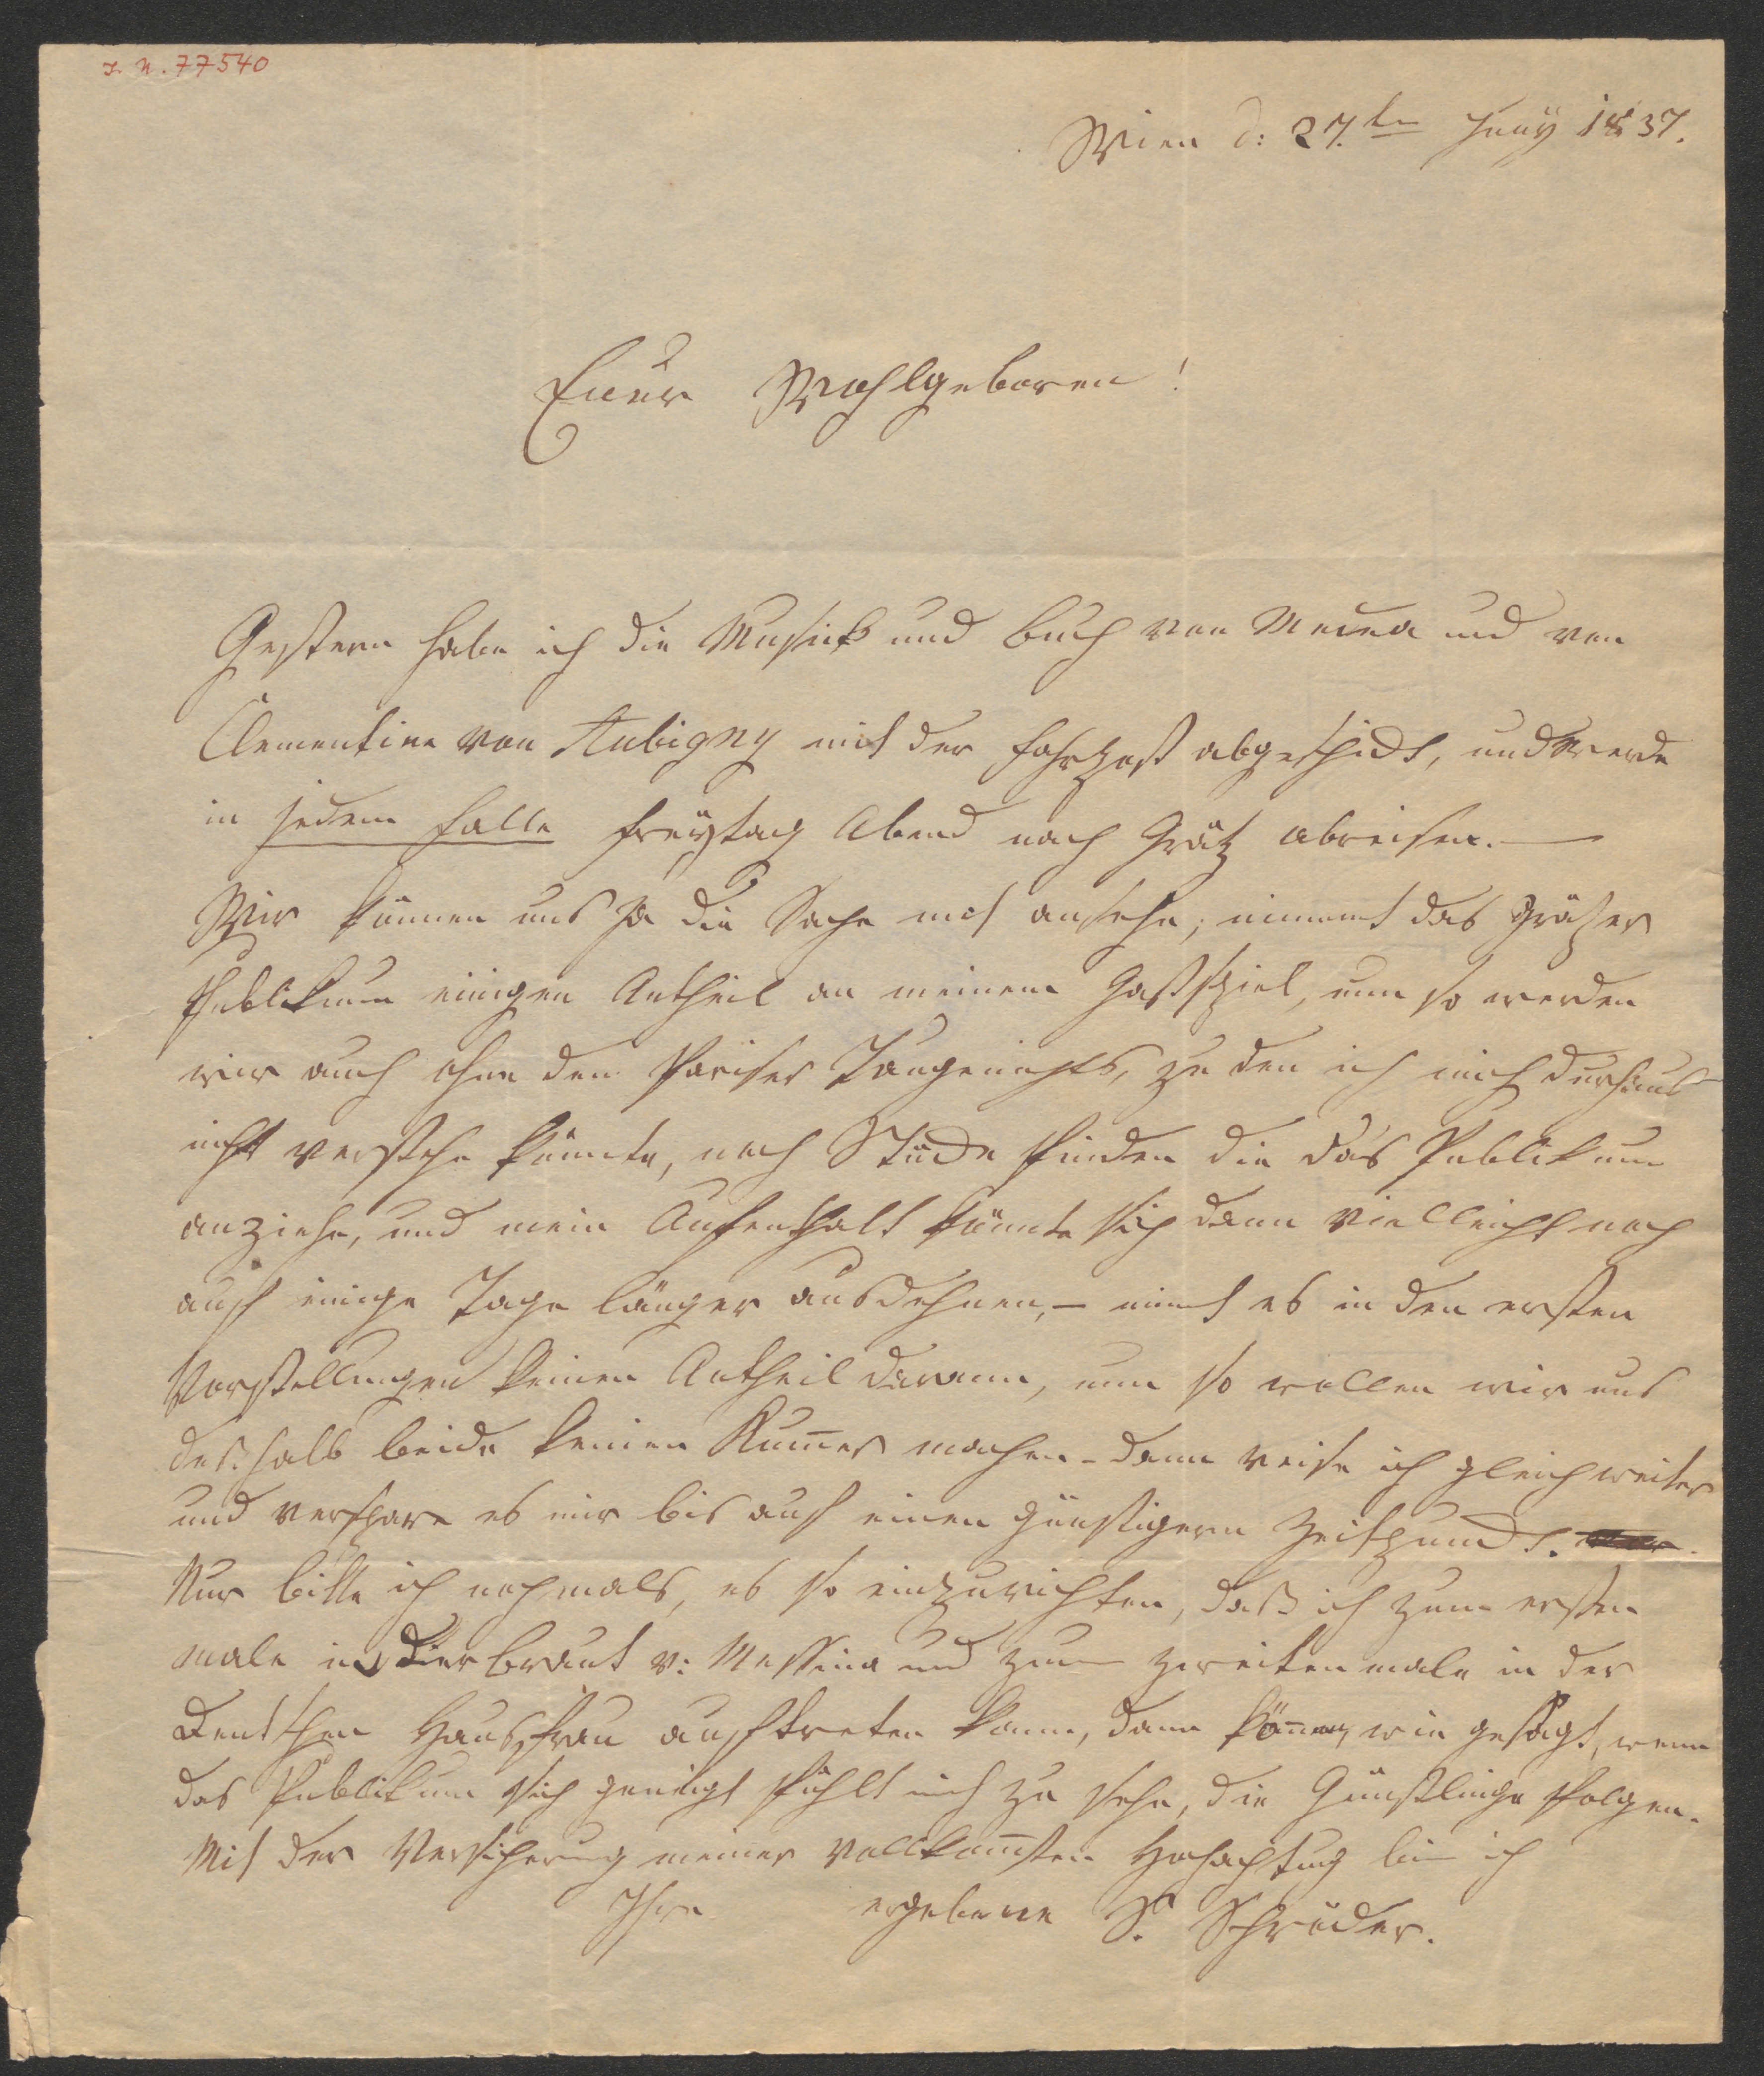 I. N. 77540
Wien d: 27.ten Juny 1837.
Euer Wohlgeboren!
Gestern habe ich die Musick und Buch von Medea und von
Clementine von Aubigny mit der Fahrpost abgeschickt, und werde
in jedem Falle Freÿtag Abend nach Grätz abreisen. —
Wir können uns ja die Sache mit ansehn; nimmt das Gräzer
Publikum einigen Antheil an meinem Gastspiel, nun so werden
wir auch ohne den Pariser Taugenichts, zu den ich mich durchaus
nicht verstehn könnte, noch Stücke finden die das Publikum
anziehn, und mein Aufenthalt könnte sich dann vielleicht noch
auf einige Tage länger ausdehnen, – nimt es in den ersten
Vorstellungen keinen Antheil darann, nun so wollen wir uns
deßhalb beide keinen Kum̅er machen – dann reise ich gleich weiter
und verspare es mir bis auf einen günstigern Zeitpunckt.
Nur bitte ich nochmals, es so einzurichten, daß ich zum ersten
male in der Braut v: Messina und zum zweitenmale in der
Deutschen Hausfrau auftreten kann, dann kön̅en, wie gesagt, wenn
das Publikum sich geneigt fühlt mich zu sehn, die Günstlinge folgen.
Mit der Versicherung meiner vollkom̅sten Hochachtung bin ich
Ihre ergebene S. Schröder.